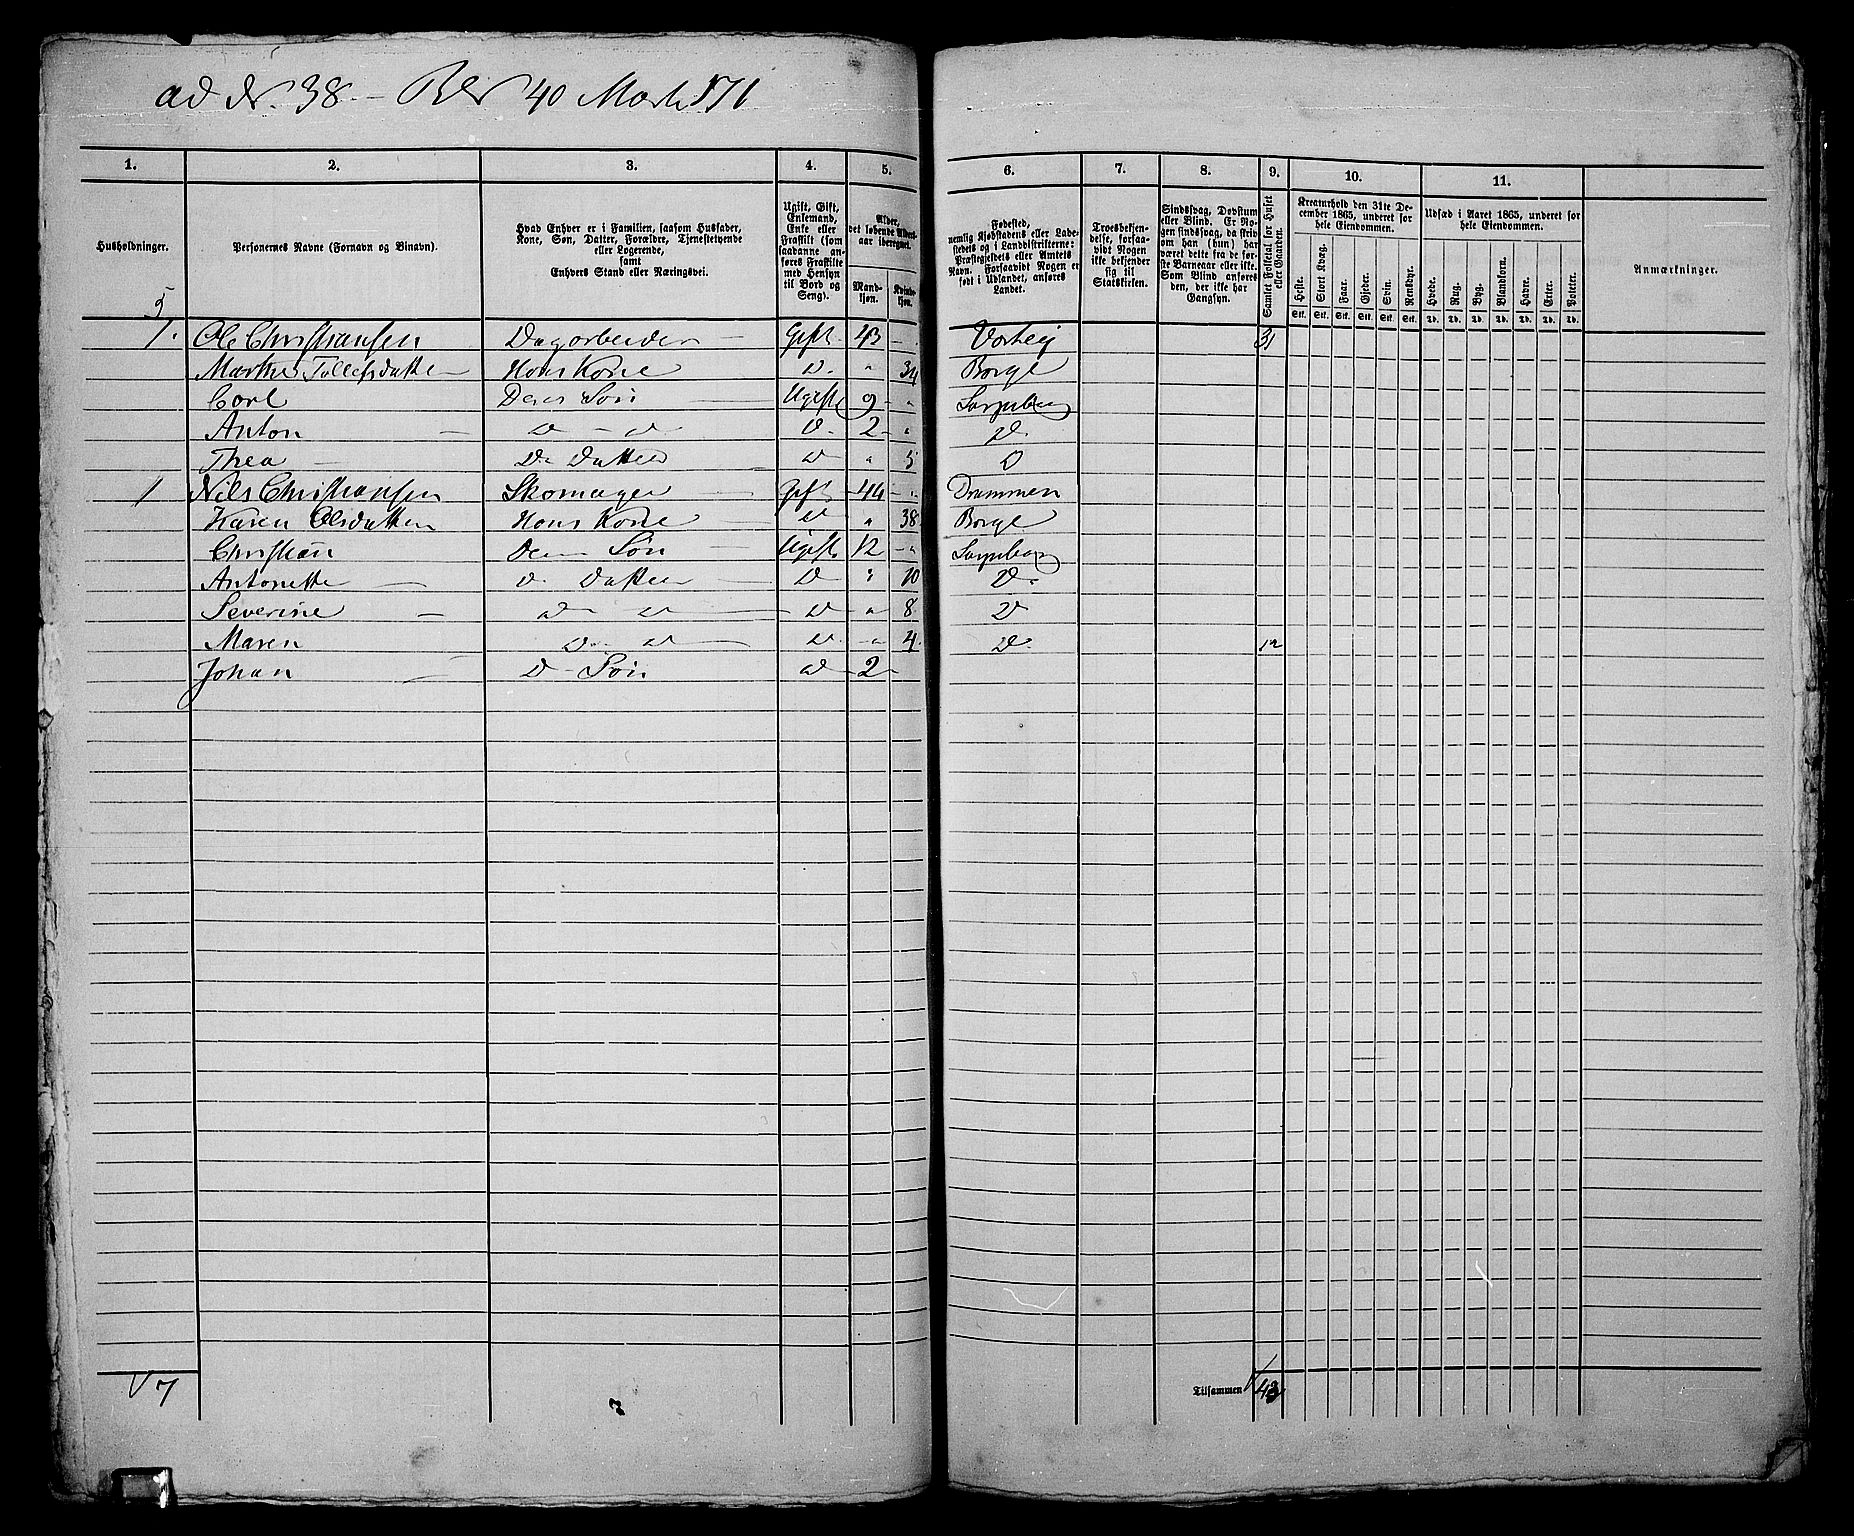 ad Nr. 38 – 40 171
1. 2. 3. 4. 5. 6. 7. 8. 9. 10. 11.
Husholdninger.
Personernes Navne (Fornavn og Binavn).
Hvad Enhver er i Familien, saasom Husfader,
Kone, Søn, Datter, Forældre, Tjenestetyende
eller Logerende,
samt
Enhvers Stand eller Næringsvei.
Ugift, Gift,
Enkemand,
Enke eller
Fraskilt (som
saadanne an-
føres Fraskilte
med Hensyn
til Bord og
Seng).
Alder,
det løbende Alders-
aar iberegnet.
Mand-
kjøn.
Kvinde-
kjøn.
Fødested,
nemlig Kjøbstadens eller Lade-
stedets og i Landdistrikterne:
Præstegjeldets eller Amtets
Navn. Forsaavidt Nogen er
født i Udlandet, anføres
Landet.
Troesbekjen-
delse, forsaa-
vidt Nogen
ikke bekjender
sig til
Statskirken.
Sindssvag, Døvstum
eller Blind. Er No-
gen sindssvag, da skriv
om han (hun) har
været dette fra de før-
ste Barneaar eller ikke.
Som Blind anføres
den, der ikke har
Gangsyn.
Samlet Folketal for Huset
eller Gaarden.
Kreaturhold den 31te De-
cember 1865, underet for
hele Eiendommen.
Heste. Stort Kvæg. Faar. Gjeder. Svin. Rensdyr.
Stk. Stk. Stk. Stk. Stk. Stk.
Udsæd i Aaret 1865, underet for
hele Eiendommen.
Hvede. Rug. Byg. Blandkorn. Havre. Erter. Poteter.
Td. Td. Td. Td. Td. Td. Td.
Anmærkninger.
5
1. Ole Christiansen Dagarbeider Gift 43 31
Marthe Tollefsdatter Hans Kone D. " 34 Borge
Carl Deres Søn Ugift 9 " Sarpsborg
Anton D D D. 2 " D.
Thea D Datter D " 5 D
1 Nils Christiansen Skomager Gift 44 " Drammen
Karen Olsdatter Hans Kone D " 38 Borge
Christian Deres Søn Ugift 12 " Sarpsborg
Antonette D. Datter D " 10 D.
Severine D D D " 8 D
Maren D D D " 4 D. 12
Johan D Søn D 2
7 Tilsammen 43